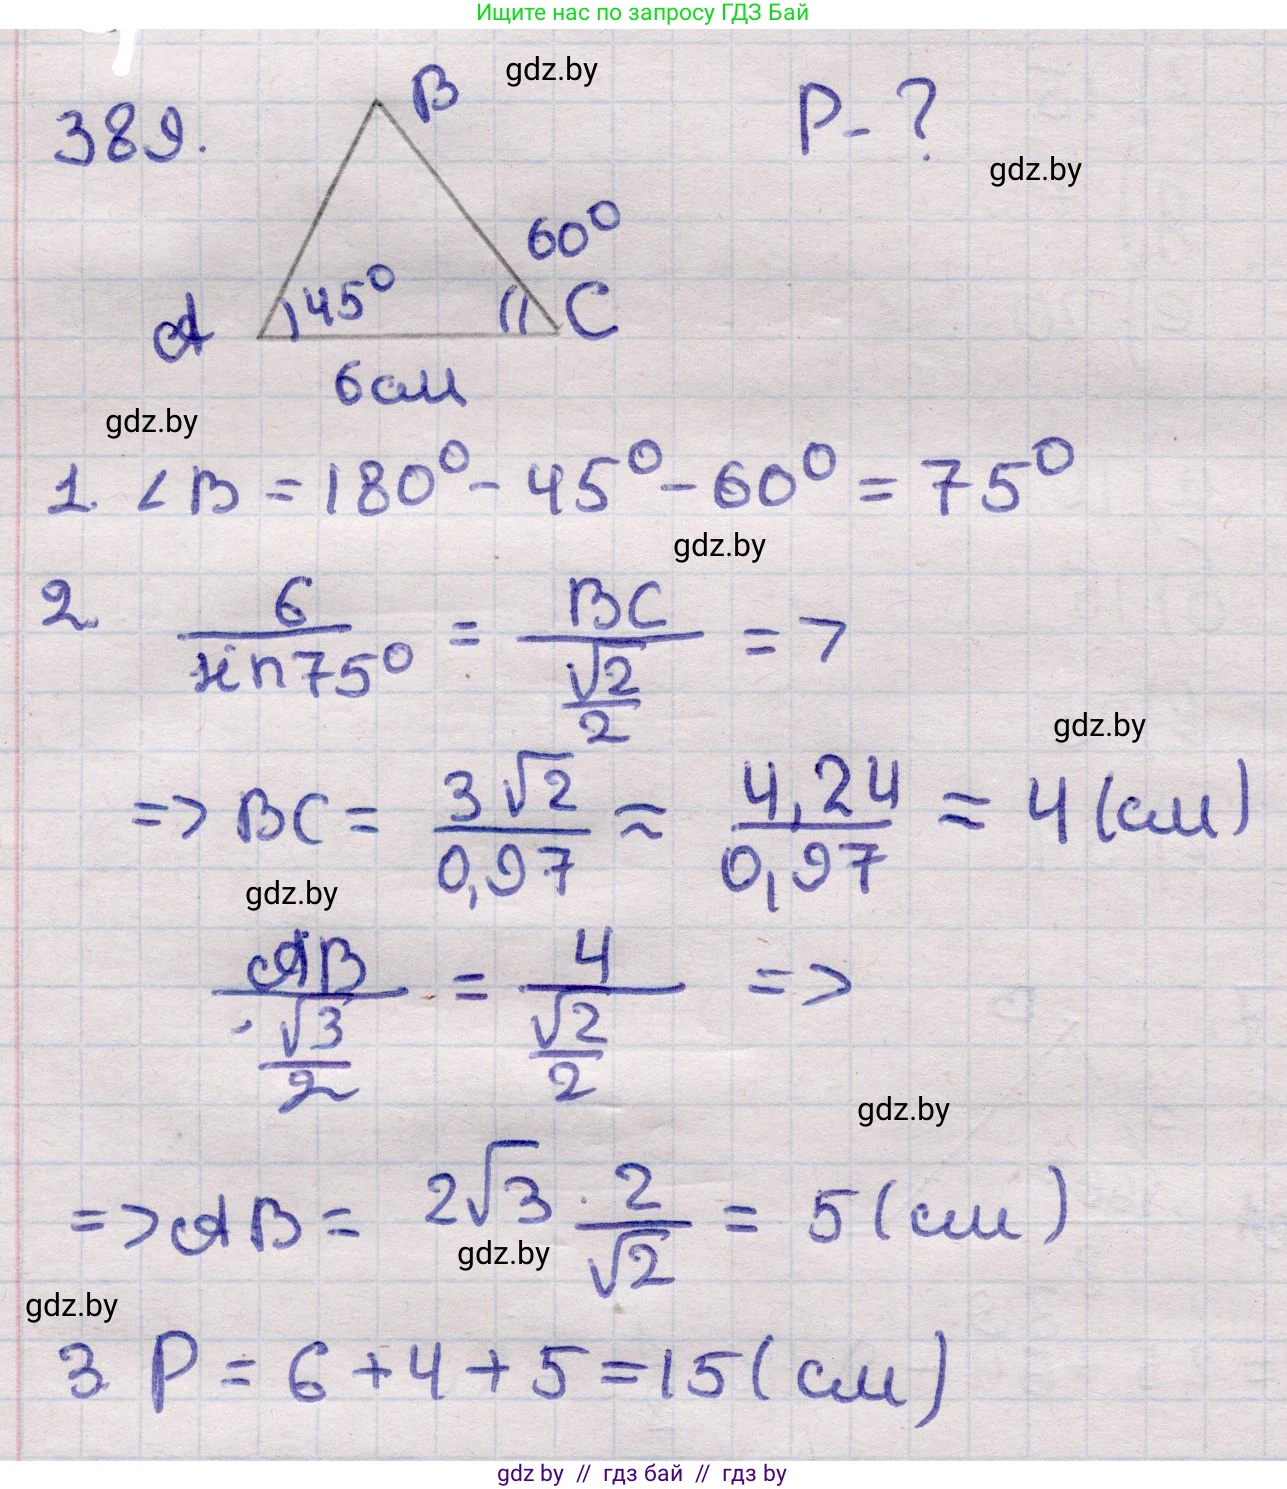 Ищите нас по запросу ГДЗ Бай
389.
B
gdz.by
P-?
gdz.by
60°
A
45°
C
6см
gdz.by
1. ∠B = 180° - 45° - 60° = 75°
gdz.by
2. 6/sin75° = BC/(√2/2) =>
gdz.by
=> BC = 3√2/0,97 ≈ 4,24/0,97 ≈ 4 (см)
gdz.by
AB/(√3/2) = 4/(√2/2) =>
gdz.by
=> AB = 2√3 · 2/√2 = 5 (см)
gdz.by
gdz.by
3 P = 6 + 4 + 5 = 15 (см)
gdz by // гдз бай // гдз by